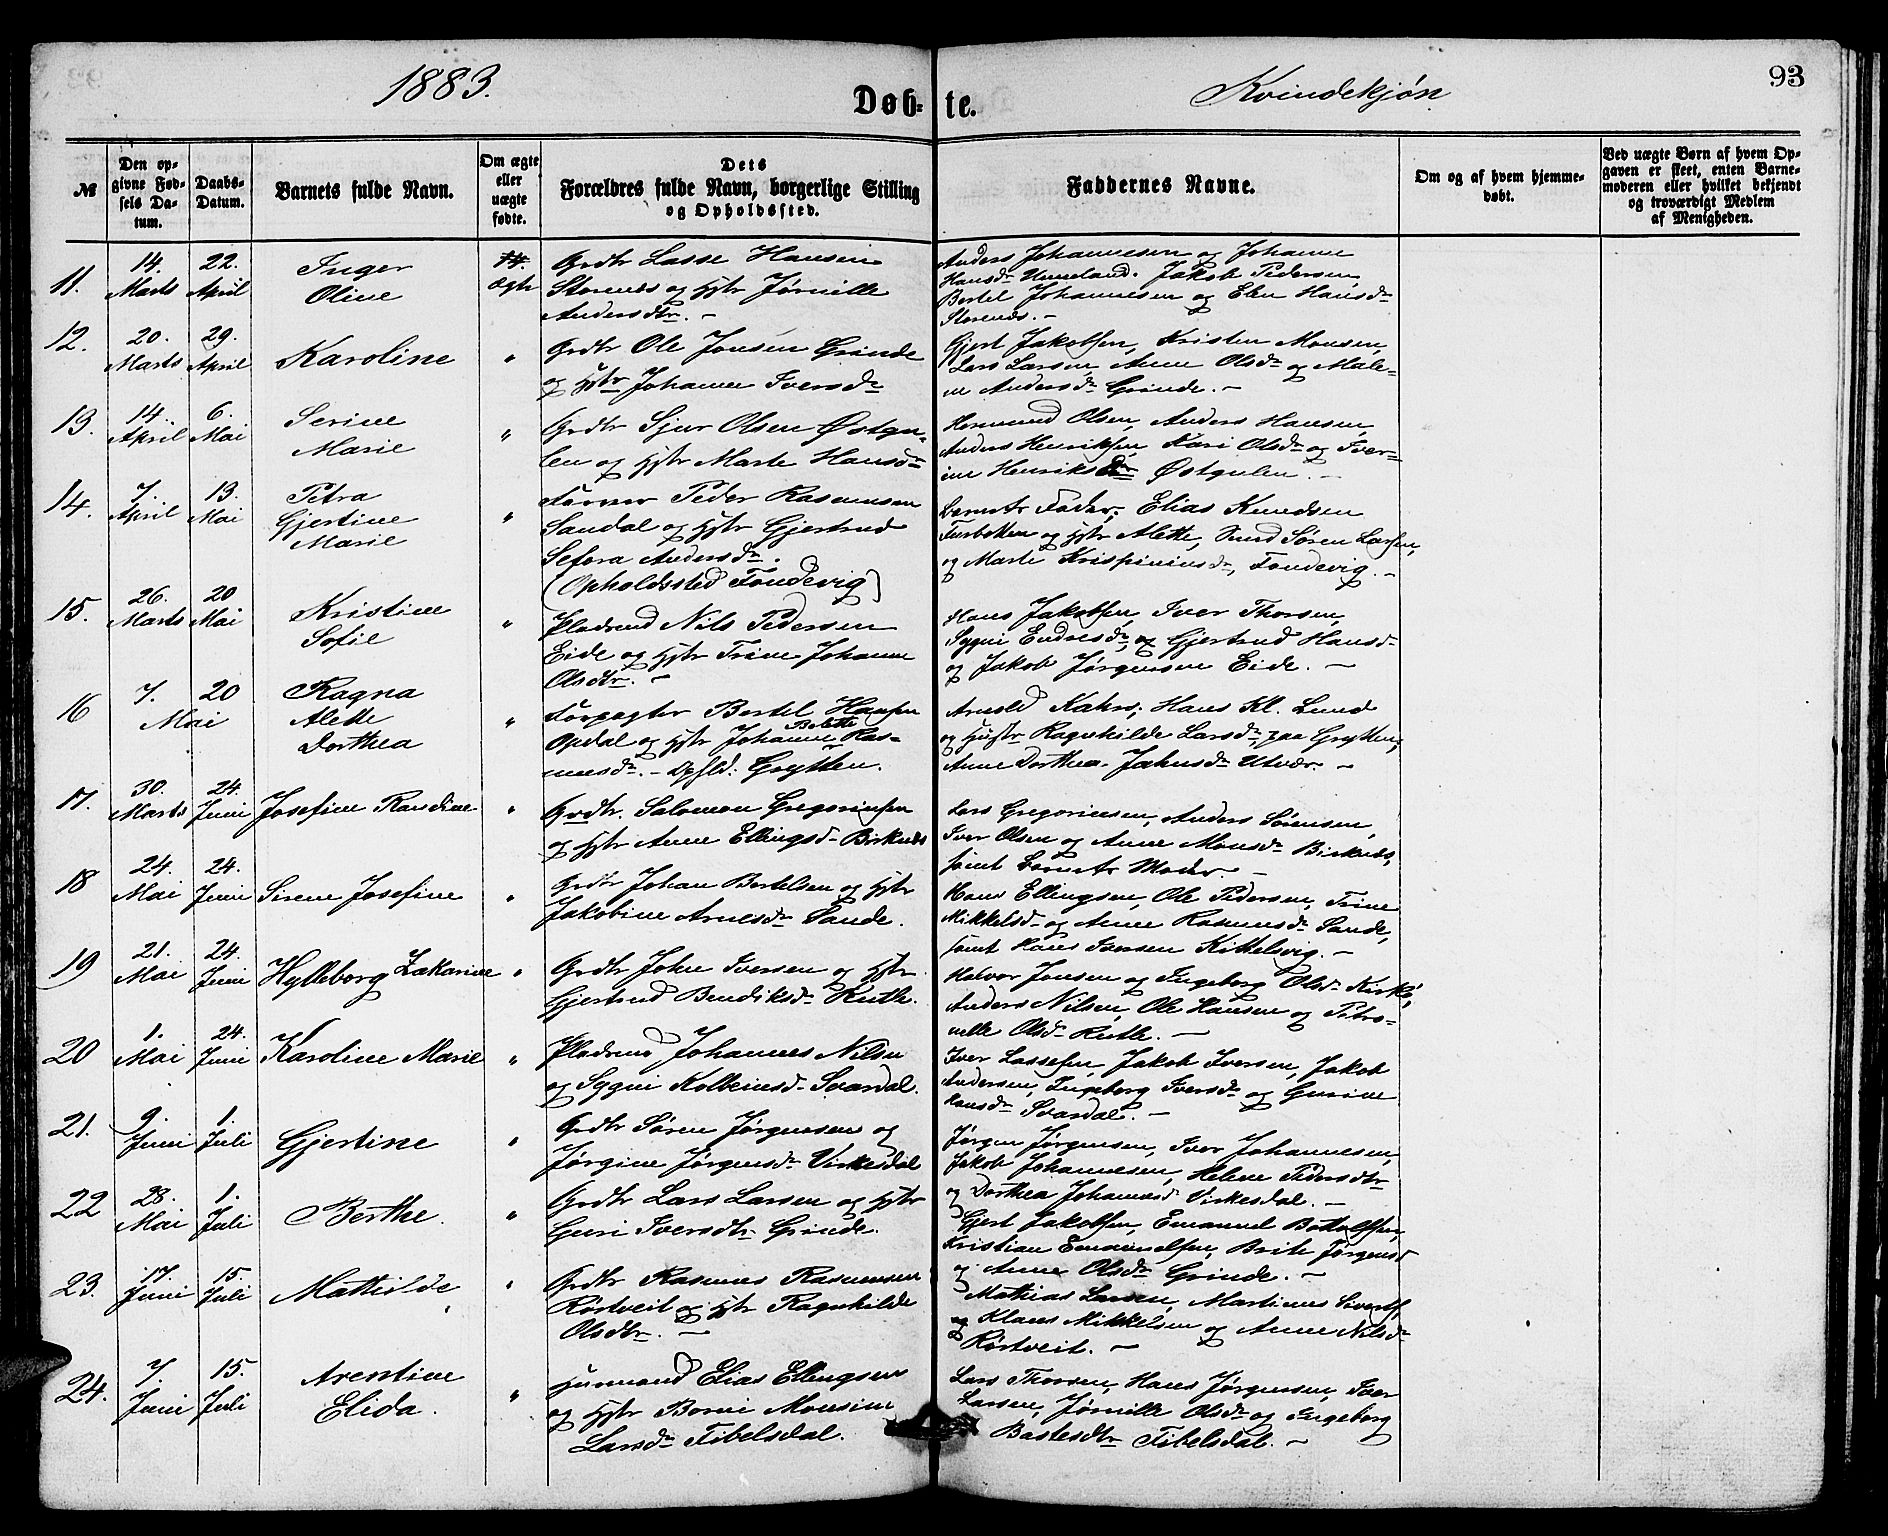 1883.
Døb-
te.
Kvindekjøn
93
№
Den op-
givne Fød-
sels Da-
tum.
Daabs-
Datum.
Barnets fulde Navn.
Om ægte
eller
uægte
fødte.
Dets
Forældres fulde Navn, borgerlige Stilling
og Opholdssted.
Faddernes Navne.
Om og af hvem hjemme-
døbt.
Ved uægte Børn af hvem Op-
gaven er skeet, enten Barne-
moderen eller hvilket bekjendt
og troværdigt Medlem
af Menigheden.
11.
14.
Marts
22.
April
Inger
Oline
Ægte
Grdbr Lasse Hansen
Storenes og Hstr Jørnille
Andersdtr. -
Anders Johannesen og Johanne
Hansdr Humeland. Jakob Pedersen,
Bertel Johannesen og Elen Hansdr
Storenes. -
12.
20.
Marts
29.
April
Karoline
"
Grdbr Ole Jonsen Grinde
og Hstr Johanne Iversdr
Gjert Jakobsen, Kristen Monsen,
Lars Larsen, Anne Olsdr og Male-
ne Andersdr Grinde. -
13.
14.
April
6.
Mai
Serine
Marie
"
Grdbr Sjur Olsen Østgu-
len og Hstr Marte Hansdr
Hermund Olsen, Anders Hansen,
Anders Henriksen, Kari Olsdr og Iver-
ine Henriksdr Østgulen. -
14.
7.
April
13.
Mai
Petra
Gjertine
Marie
"
Peder Rasmusen
Sandal og Hstr Gjertrud
Sefora Andersdr.
(Opholdssted Tøndevig)
Barnets Fader, Elias Knudsen
og Hstr Alette, Søren Larsen,
og Marte Krispinusdr, Tøndevig. -
15.
26.
Marts
20
Mai
Kristine
Sofie
"
Pladsmd Nils Pedersen
Eide og Hstr Trine Johanne
Olsdtr. -
Hans Jakobsen, Iver Thorsen,
Sygni Endresdr, og Gjertrud Hansd-
og Jakob Jørgensen Eide. -
16
7.
Mai
20
Ragna
Alette
Dorthea
"
Forpagter Bertel Hansen
Opdal og Hstr Johanne Belette Ras-
musdr. - Ophld: Grytten.
Arnold Kahrs, Hans Kl. Lund
og Hustr Ragnhilde Larsdr, paa Grytten,
Anne Dorthea Jahnsdr Utvær. -
17.
30.
Marts
24.
Juni
Josefine Randine
"
Grdbr. Salomon Gregoriusen
og Hstr Anne Ellingsd- Birknes
Lars Gregoriusen, Anders Sørensen,
Iver Olsen og Anne Monsdr Birknes,
samt Barnets Moder. -
18
24.
Mai
24.
Juni
Sirene Josefine
"
Grdbr Johan Bertelsen og Hstr
Jakobine Arnesdr Sande.
Hans Ellingsen, Ole Pedersen, Trine
Mikkelsd- og Anne Rasmusdr Sande,
samt Hans Iversen Kittelsvig. -
19
21.
Mai
24.
Juni
Hylleborg Zakarine
"
Grdbr John Iversen og Hstr
Gjertrud Bendiksdr Rutle.
Halvor Jonsen og Ingeborg Olsdr Kirkø,
Anders Nilsen, Ole Hansen og Petro-
nille Olsdr Rutle. -
20
1.
Mai
24.
Juni
Karoline Marie
"
Pladsmd Johannes Nilsen
og Sygni Kolbeinsd- Svardal.
Iver Lassesen, Jakob Iversen, Jakob
Andersen, Ingeborg Iversdr og Gurine
Hansdr Svardal. -
21.
9.
Juni
1.
Juli
Gjertine
"
Grdbr Søren Jørgensen og
Jørgine Jørgensdr Virkesdal
Jørgen Jørgensen, Iver Johannesen,
Jakob Johannesen, Helene Pedersdtr
og Dorthea Johannesd Virkesdal. -
22
28.
Mai
1.
Juli
Berthe.
"
Grdbr Lars Larsen og Hstr
Guri Iversdtr Grinde.
Gjert Jakobsen, Emanuel Bottolfsen,
Kristian Emanuelsen, Brite Jørgensd
og Anne Olsdr Grinde. -
23.
17.
Juni
15.
Juli
Mathilde
"
Grdbr Rasmus Rasmusen
Rørtveit og Hstr Ragnhilde
Olsdtr. -
Mathias Larsen, Martinus Sivertsen
og Klaus Mikkelsen og Anne Nilsdr
Rørtveit. -
24.
7.
Juni
15.
Juli
Arentine
Elida.
"
Husmand Elias Ellingsen
og Hstr Borni Monsine
Larsdr Fibelsdal.
Lars Thorsen, Hans Jørgensen, Iver
Larsen, Jørnille Olsdr og Ingeborg
Bastesdtr Fibelsdal. -